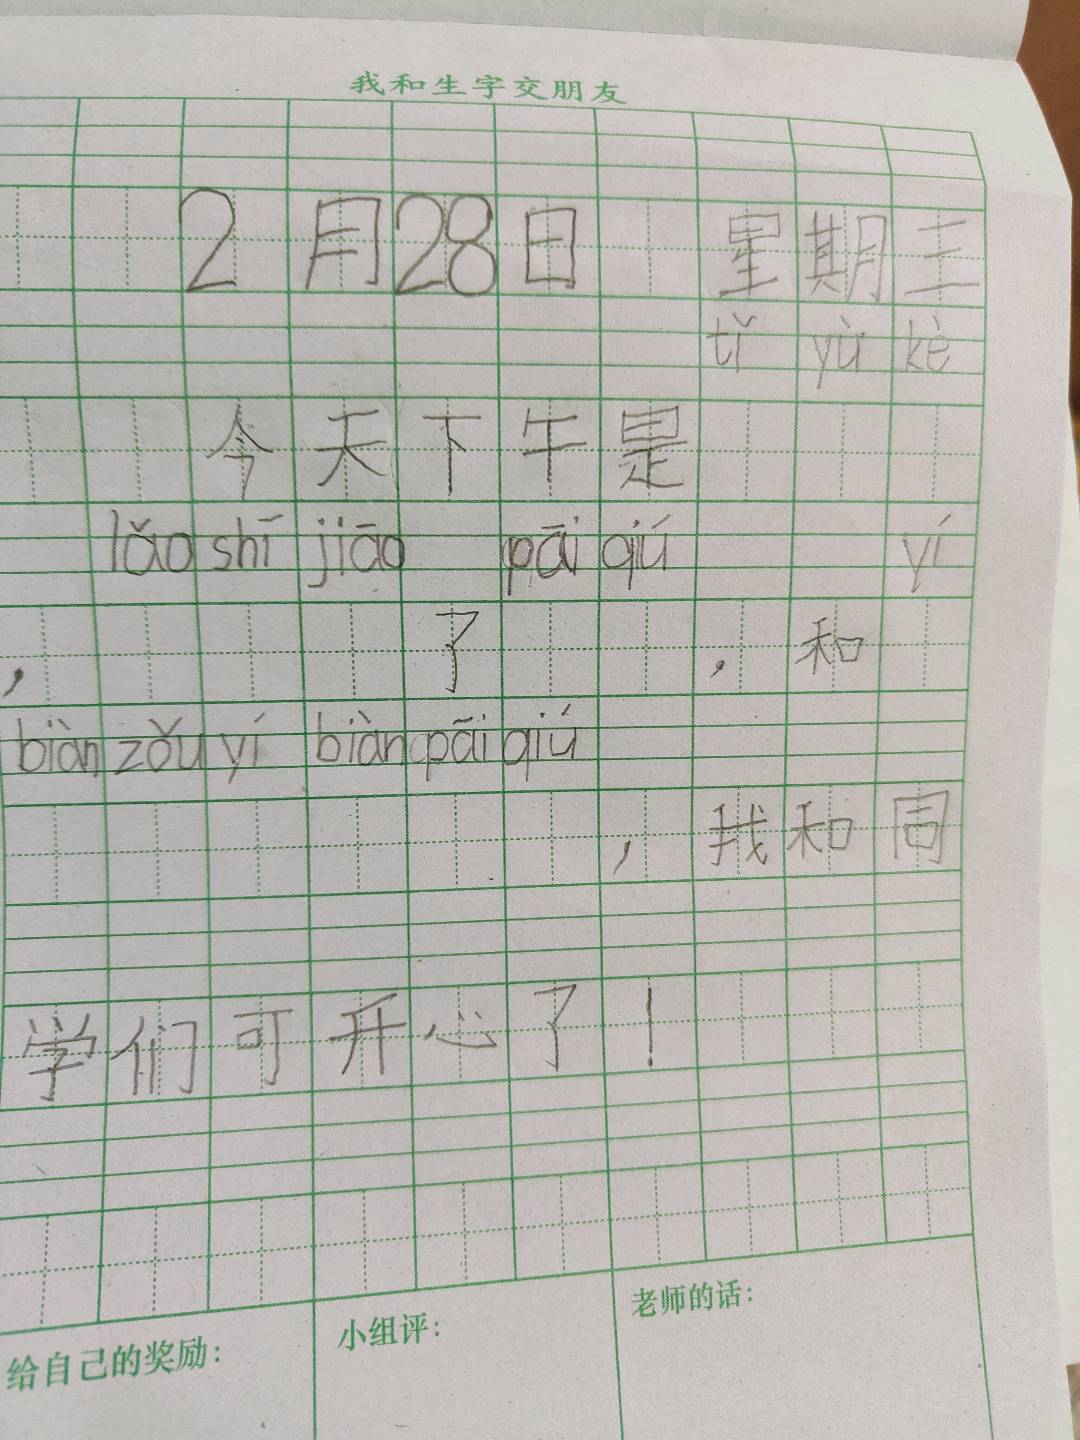 我和生字交朋友
2月28日 星期三
tǐ yù kè
今天下午是
lǎo shī jiāo pāi qiú yí
，了，和
biàn zǒu yí biàn pāi qiú
，找和同
学们可开心了！
给自己的奖励：
小组评：
老师的话：